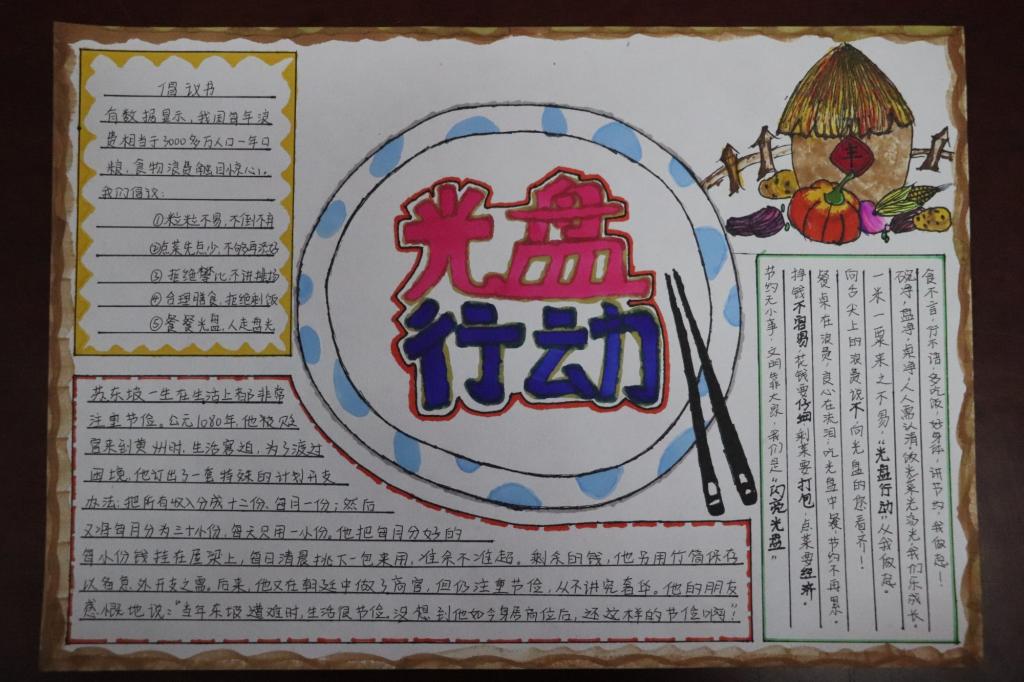 倡议书
有数据显示，我国每年浪
费相当于3000多万人口一年口
粮，食物浪费触目惊心。
我们倡议：
①粒粒不易，不倒不弃
②点菜先点少，不够再添好
③拒绝攀比，不讲排场
④合理膳食，拒绝剩饭
⑤餐餐光盘，人走盘光
光盘
行动
丰
苏东坡一生在生活上都非常
注重节俭。公元1080年他被贬
官来到黄州时，生活窘迫，为了渡过
困境，他订出了一套特殊的计划开支
办法：把所有收入分成十二份，每月一份；然后
又将每月分为三十小份，每天只用一小份。他把每月分好的
每小份钱挂在屋梁上，每日清晨挑下一包来用，准余不准超。剩余的钱，他另用竹筒保存
以备意外开支之需。后来，他又在朝廷中做了高官，但仍注重节俭，从不讲究奢华。他的朋友
感慨地说："当年东坡遭难时，生活很节俭。没想到他如今身居高位后，还这样的节俭啊！"
食不言，行不语，多吃饭，好身体，讲节约，我做起！
碗净，盘净，桌净，人人需认清饭光菜光汤光我们乐成长。
一米一粟来之不易，"光盘行动"从我做起。
向舌尖上的浪费说不向光盘的您看齐！
餐桌在浪费，良心在流泪，吃光盘中餐，节约不再累。
挣钱不容易，花钱要仔细，剩菜要打包，点菜要经济。
节约无小事，文明靠大家，我们是"闪亮光盘"